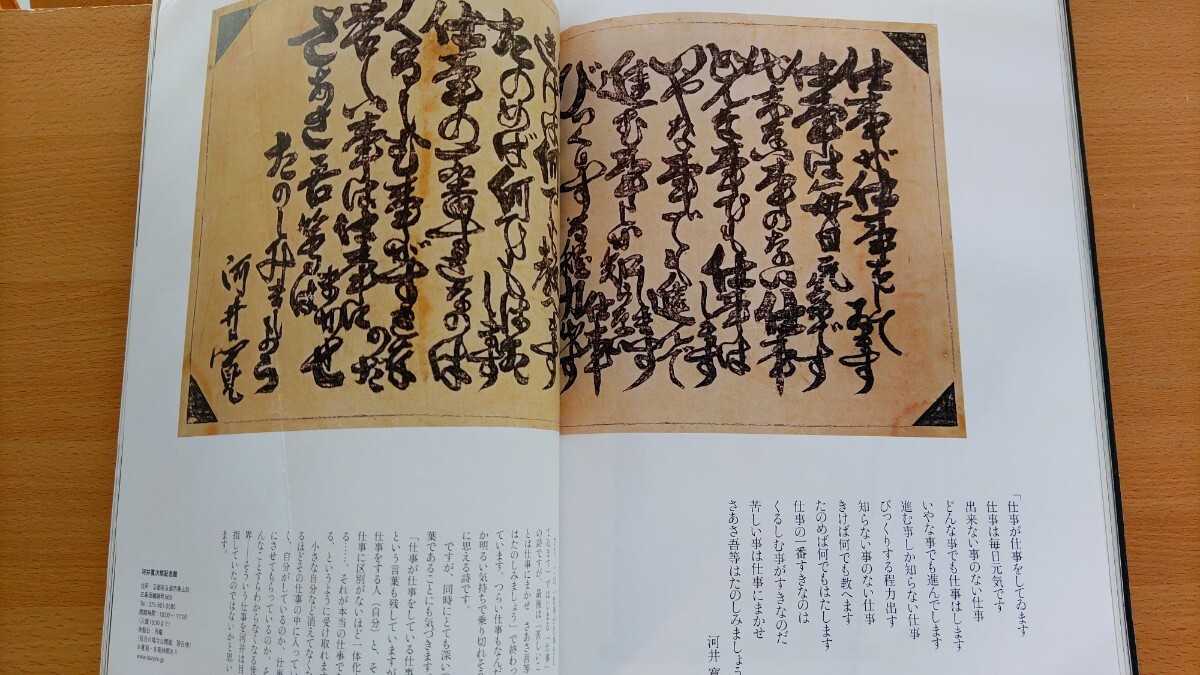 仕事が仕事をして
ゐます
仕事は毎日元気です
出来ない事のない仕事
どんな事でも仕事は
します
いやな事でも進んで
進む事しか知らない
仕事
びっくりする程力出す
たのめば何でもはた
します
仕事の一番すきなのは
くるしむ事がすきな
のだ
苦しい事は仕事に
まかせ
さあさ吾等は
たのしみましょう
河井寛
「仕事が仕事をしてゐます
仕事は毎日元気です
出来ない事のない仕事
どんな事でも仕事はします
いやな事でも進んでします
進む事しか知らない仕事
びっくりする程力出す
知らない事のない仕事
きけば何でも教へます
たのめば何でもはたします
仕事の一番すきなのは
くるしむ事がすきなのだ
苦しい事は仕事にまかせ
さあさ吾等はたのしみましょう
河井寛
の詩ですが、最後は「苦しいこ
とは仕事にまかせ さあさ吾等
はたのしみましょう」で終わっ
ています。つらい仕事もなんだ
か明るい気持ちで乗り切れそう
に思える詩です。
ですが、同時にとても深い言
葉であることにも気づきます。
「仕事が仕事をしている仕事」
という言葉も残していますが、
仕事をする人（自分）と、その
仕事に区別がないほど一体化す
る……、それが本当の仕事であ
る、というように受け取れます。
小さな自分など消えてなくな
るほどその仕事の中に入ってい
く、自分がしているのか、仕事
にさせてもらっているのか、そ
んなことすらわからなくなる世
界――そういう仕事を河井は目
指していたのではないかと思い
ます。
河井寛次郎記念館
住所：京都府京都市東山区
五条坂鐘鋳町569
Tel：075-561-3585
開館時間：10:00〜17:00
（入館16:30まで）
休館日：月曜
（祝日の場合は開館、翌日休）
※夏期・冬期休館あり
www.kanjiro.jp